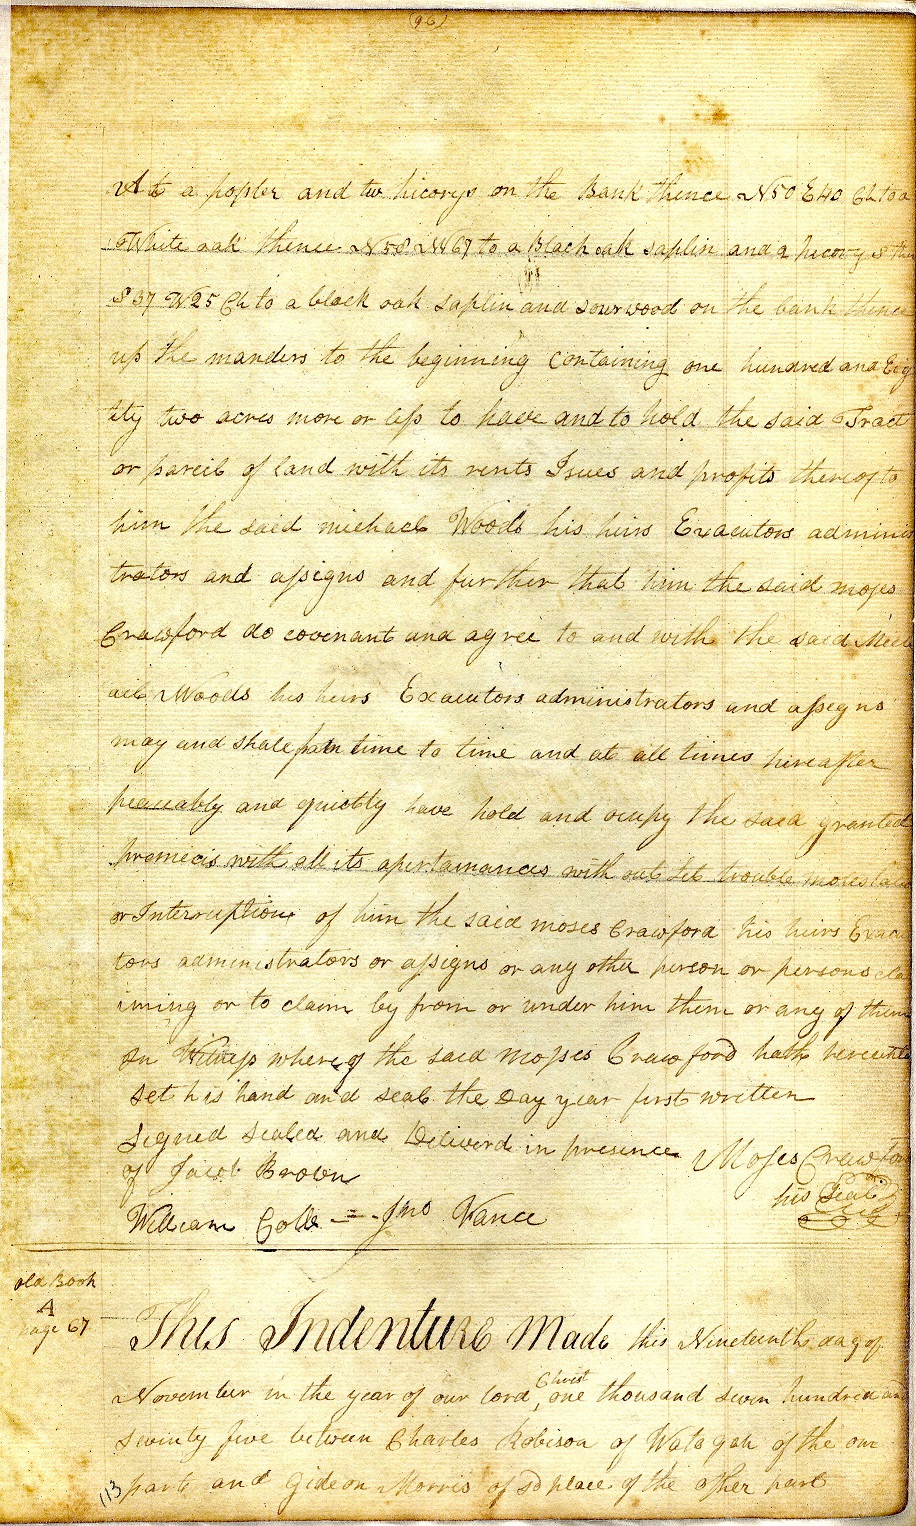 (96)
At a popler and two hicorys on the Bank thence N50 E40 Ch to a
White oak thence N58 W67 to a Black oak saplin and a hicory s then
S37 W25 Ch to a black oak saplin and sourwood on the bank thence
up the manders to the beginning Containing one hundred and Eig
tity two acres more or less to have and to hold the said Tract
or parcil of land with its rents Isues and profits thereof to
him the said michael Woods his heirs Exacutors adminis
trators and assigns and further that him the said moses
Crawford do covenant and agree to and with the said Mich
ael Woods his heirs Exacutors administrators and assigns
may and shall from time to time and at all times hereafter
peaceably and quietly have hold and ocupy the said granted
promecis with all its apertainances with out Let trouble molesta
or Interruption of him the said moses Crawford his heirs Exacu
tors administrators or assigns or any other person or persons cla
iming or to claim by from or under him them or any of them
In Witness where of the said Mosses Crawford hath hereunto
set his hand and seal the Day year first written
Signed Sealed and Deliverd in presence Moses Crawford
of Jacob Brown his Seal
William Cobb = Jno Vance
old Book
A
page 67
This Indenture Made this Nineteenth day of
November in the year of our lord Christ one thousand seven hundred and
seventy five between Charles Robison of Watogah of the one
113 part and Gideon Morris of sd place of the other part